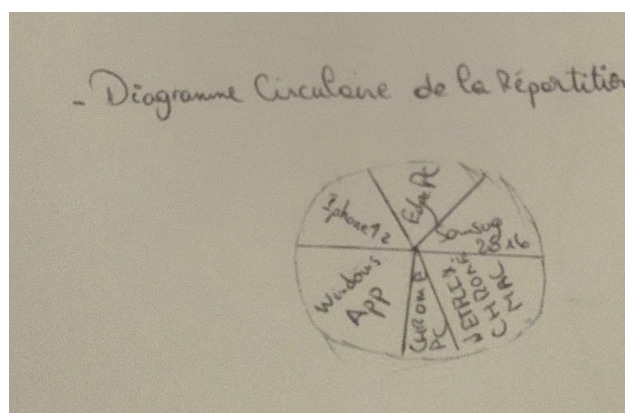 - Diagramme Circulaire de la Répartition
Iphone 12
Edge PC
Samsung
2016
Windows
App
CHROME
PC
CHROME
MAC